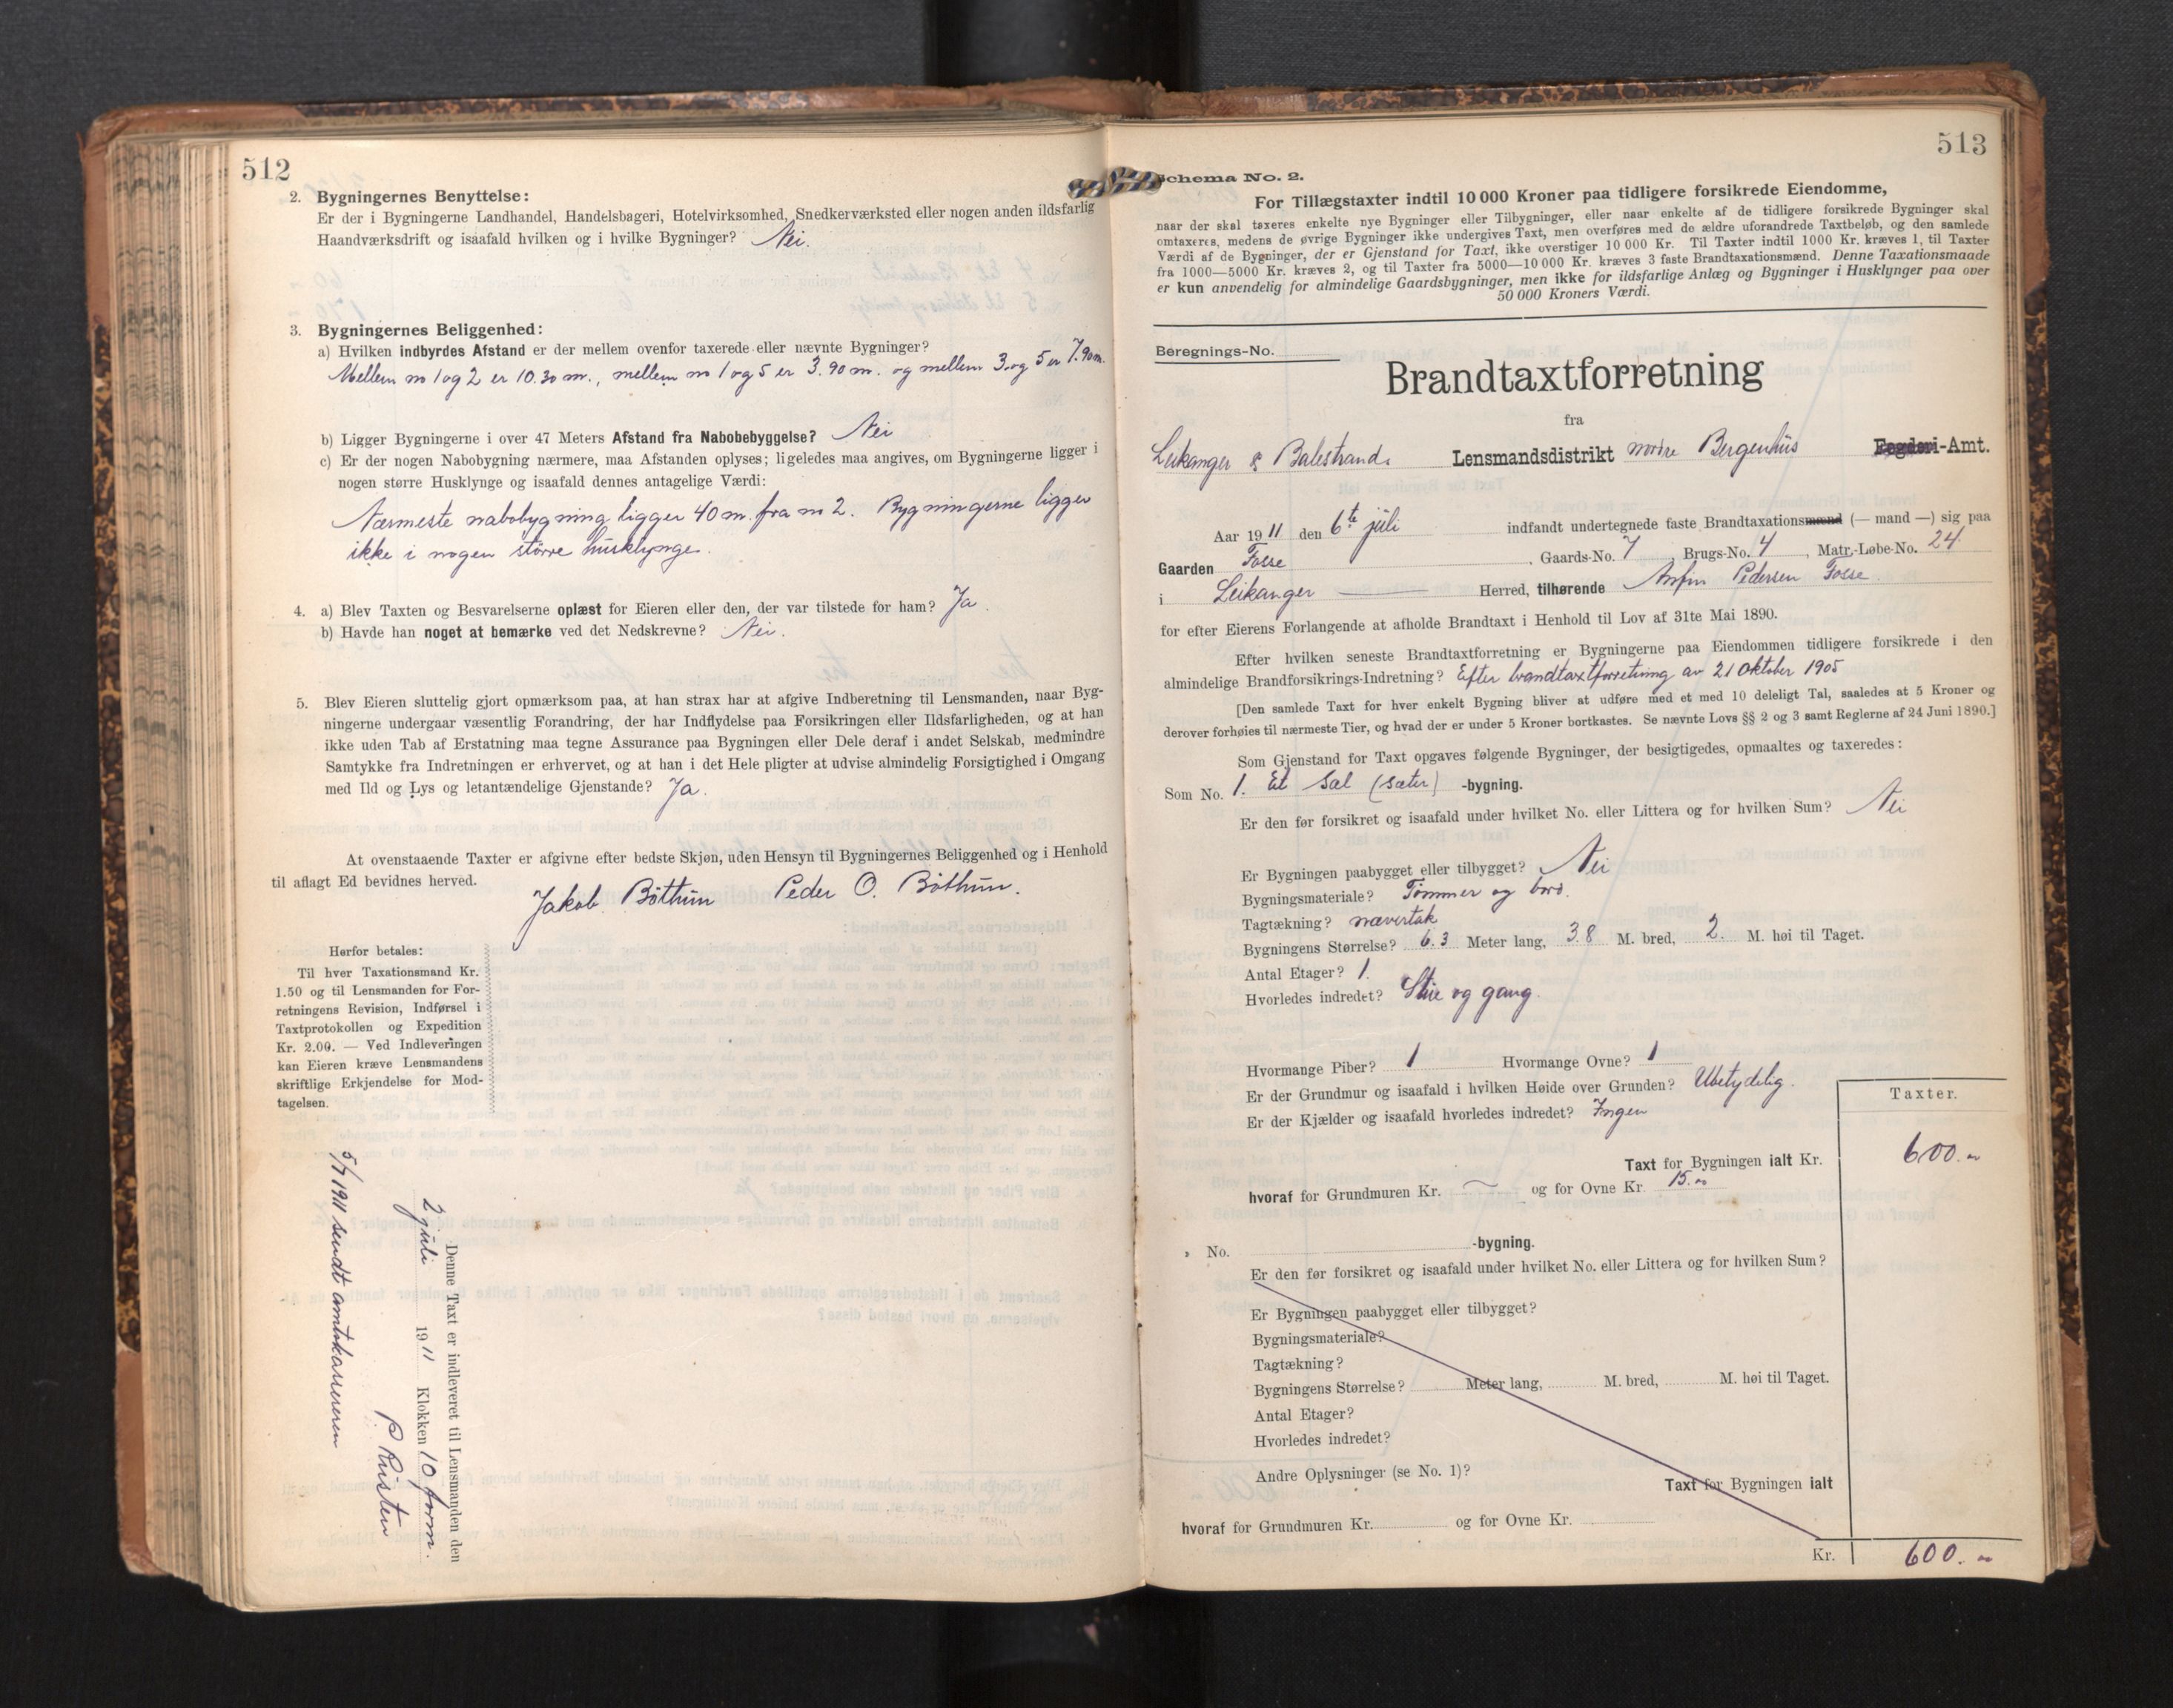 512
2. Bygningernes Benyttelse:
Er der i Bygningerne Landhandel, Handelsbageri, Hotelvirksomhed, Snedkerværksted eller nogen anden ildsfarlig
Haandværksdrift og isaafald hvilken og i hvilke Bygninger? Nei.
3. Bygningernes Beliggenhed:
a) Hvilken indbyrdes Afstand er der mellem ovenfor taxerede eller nævnte Bygninger?
Mellem no 1 og 2 er 10.30 m., mellem no 1 og 5 er 3.90 m. og mellem 3 og 5 er 7.90 m.
b) Ligger Bygningerne i over 47 Meters Afstand fra Nabobebyggelse? Nei
c) Er der nogen Nabobygning nærmere, maa Afstanden oplyses; ligeledes maa angives, om Bygningerne ligger i
nogen større Husklynge og isaafald dennes antagelige Værdi:
Nærmeste nabobygning ligger 40 m. fra no 2. Bygningerne ligger
ikke i nogen større husklynge.
4. a) Blev Taxten og Besvarelserne oplæst for Eieren eller den, der var tilstede for ham? Ja.
b) Havde han noget at bemærke ved det Nedskrevne? Nei.
5. Blev Eieren sluttelig gjort opmærksom paa, at han strax har at afgive Indberetning til Lensmanden, naar Byg-
ningerne undergaar væsentlig Forandring, der har Indflydelse paa Forsikringen eller Ildsfarligheden, og at han
ikke uden Tab af Erstatning maa tegne Assurance paa Bygningen eller Dele deraf i andet Selskab, medmindre
Samtykke fra Indretningen er erhvervet, og at han i det Hele pligter at udvise almindelig Forsigtighed i Omgang
med Ild og Lys og letantændelige Gjenstande? Ja.
At ovenstaaende Taxter er afgivne efter bedste Skjøn, uden Hensyn til Bygningernes Beliggenhed og i Henhold
til aflagt Ed bevidnes herved.
Jakob Bøthun Peder O. Bøthun.
Herfor betales:
Til hver Taxationsmand Kr.
1.50 og til Lensmanden for For-
retningens Revision, Indførsel i
Taxtprotokollen og Expedition
Kr. 2.00. — Ved Indleveringen
kan Eieren kræve Lensmandens
skriftlige Erkjendelse for Mod-
tagelsen.
Denne Taxt er indleveret til Lensmanden den
2 juli 1911 Klokken 10 form.
P. Husten
5/7 1911 sendt amtskassereren
513
Schema No. 2.
For Tillægstaxter indtil 10 000 Kroner paa tidligere forsikrede Eiendomme,
naar der skal taxeres enkelte nye Bygninger eller Tilbygninger, eller naar enkelte af de tidligere forsikrede Bygninger skal
omtaxeres, medens de øvrige Bygninger ikke undergives Taxt, men overføres med de ældre uforandrede Taxtbeløb, og den samlede
Værdi af de Bygninger, der er Gjenstand for Taxt, ikke overstiger 10 000 Kr. Til Taxter indtil 1000 Kr. kræves 1, til Taxter
fra 1000—5000 Kr. kræves 2, og til Taxter fra 5000—10 000 Kr. kræves 3 faste Brandtaxationsmænd. Denne Taxationsmaade
er kun anvendelig for almindelige Gaardsbygninger, men ikke for ildsfarlige Anlæg og Bygninger i Husklynger paa over
50 000 Kroners Værdi.
Beregnings-No.
Brandtaxtforretning
fra
Leikanger & Balestrands Lensmandsdistrikt nordre Bergenhus Fogderi-Amt.
Aar 1911 den 6te juli indfandt undertegnede faste Brandtaxationsmænd (— mand —) sig paa
Gaarden Fosse, Gaards-No. 7, Brugs-No. 4, Matr.-Løbe-No. 24
i Leikanger Herred, tilhørende Anfin Pedersen Fosse
for efter Eierens Forlangende at afholde Brandtaxt i Henhold til Lov af 31te Mai 1890.
Efter hvilken seneste Brandtaxtforretning er Bygningerne paa Eiendommen tidligere forsikrede i den
almindelige Brandforsikrings-Indretning? Efter brandtaxtforretning av 21 Oktober 1905
[Den samlede Taxt for hver enkelt Bygning bliver at udføre med et med 10 deleligt Tal, saaledes at 5 Kroner og
derover forhøies til nærmeste Tier, og hvad der er under 5 Kroner bortkastes. Se nævnte Lovs §§ 2 og 3 samt Reglerne af 24 Juni 1890.]
Som Gjenstand for Taxt opgaves følgende Bygninger, der besigtigedes, opmaaltes og taxeredes:
Som No. 1. Et Sæl (sæter) -bygning.
Er den før forsikret og isaafald under hvilket No. eller Littera og for hvilken Sum? Nei
Er Bygningen paabygget eller tilbygget? Nei
Bygningsmateriale? Tømmer og bord.
Tagtækning? nævertak
Bygningens Størrelse? 6.3 Meter lang, 3.8 M. bred, 2. M. høi til Taget.
Antal Etager? 1.
Hvorledes indredet? Stue og gang.
Hvormange Piber? 1 Hvormange Ovne? 1
Er der Grundmur og isaafald i hvilken Høide over Grunden? Ubetydelig.
Er der Kjælder og isaafald hvorledes indredet? Ingen
Taxter.
Taxt for Bygningen ialt Kr. 600.
hvoraf for Grundmuren Kr. ~ og for Ovne Kr. 15.
„ No. -bygning.
Er den før forsikret og isaafald under hvilket No. eller Littera og for hvilken Sum?
Er Bygningen paabygget eller tilbygget?
Bygningsmateriale?
Tagtækning?
Bygningens Størrelse? Meter lang, M. bred, M. høi til Taget.
Antal Etager?
Hvorledes indredet?
Andre Oplysninger (se No. 1)?
Taxt for Bygningen ialt
hvoraf for Grundmuren Kr. og for Ovne Kr.
Kr. 600.